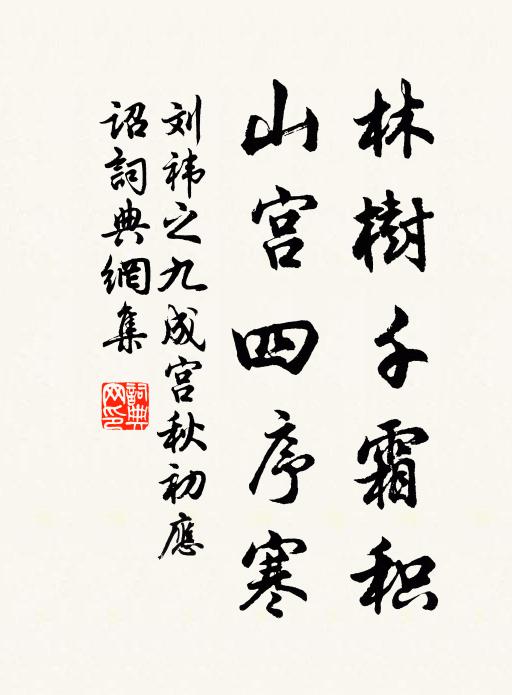 林樹千霜积
山宫四序寒
刘祎之九成宫秋初應
詔詞典網集
詞典网印